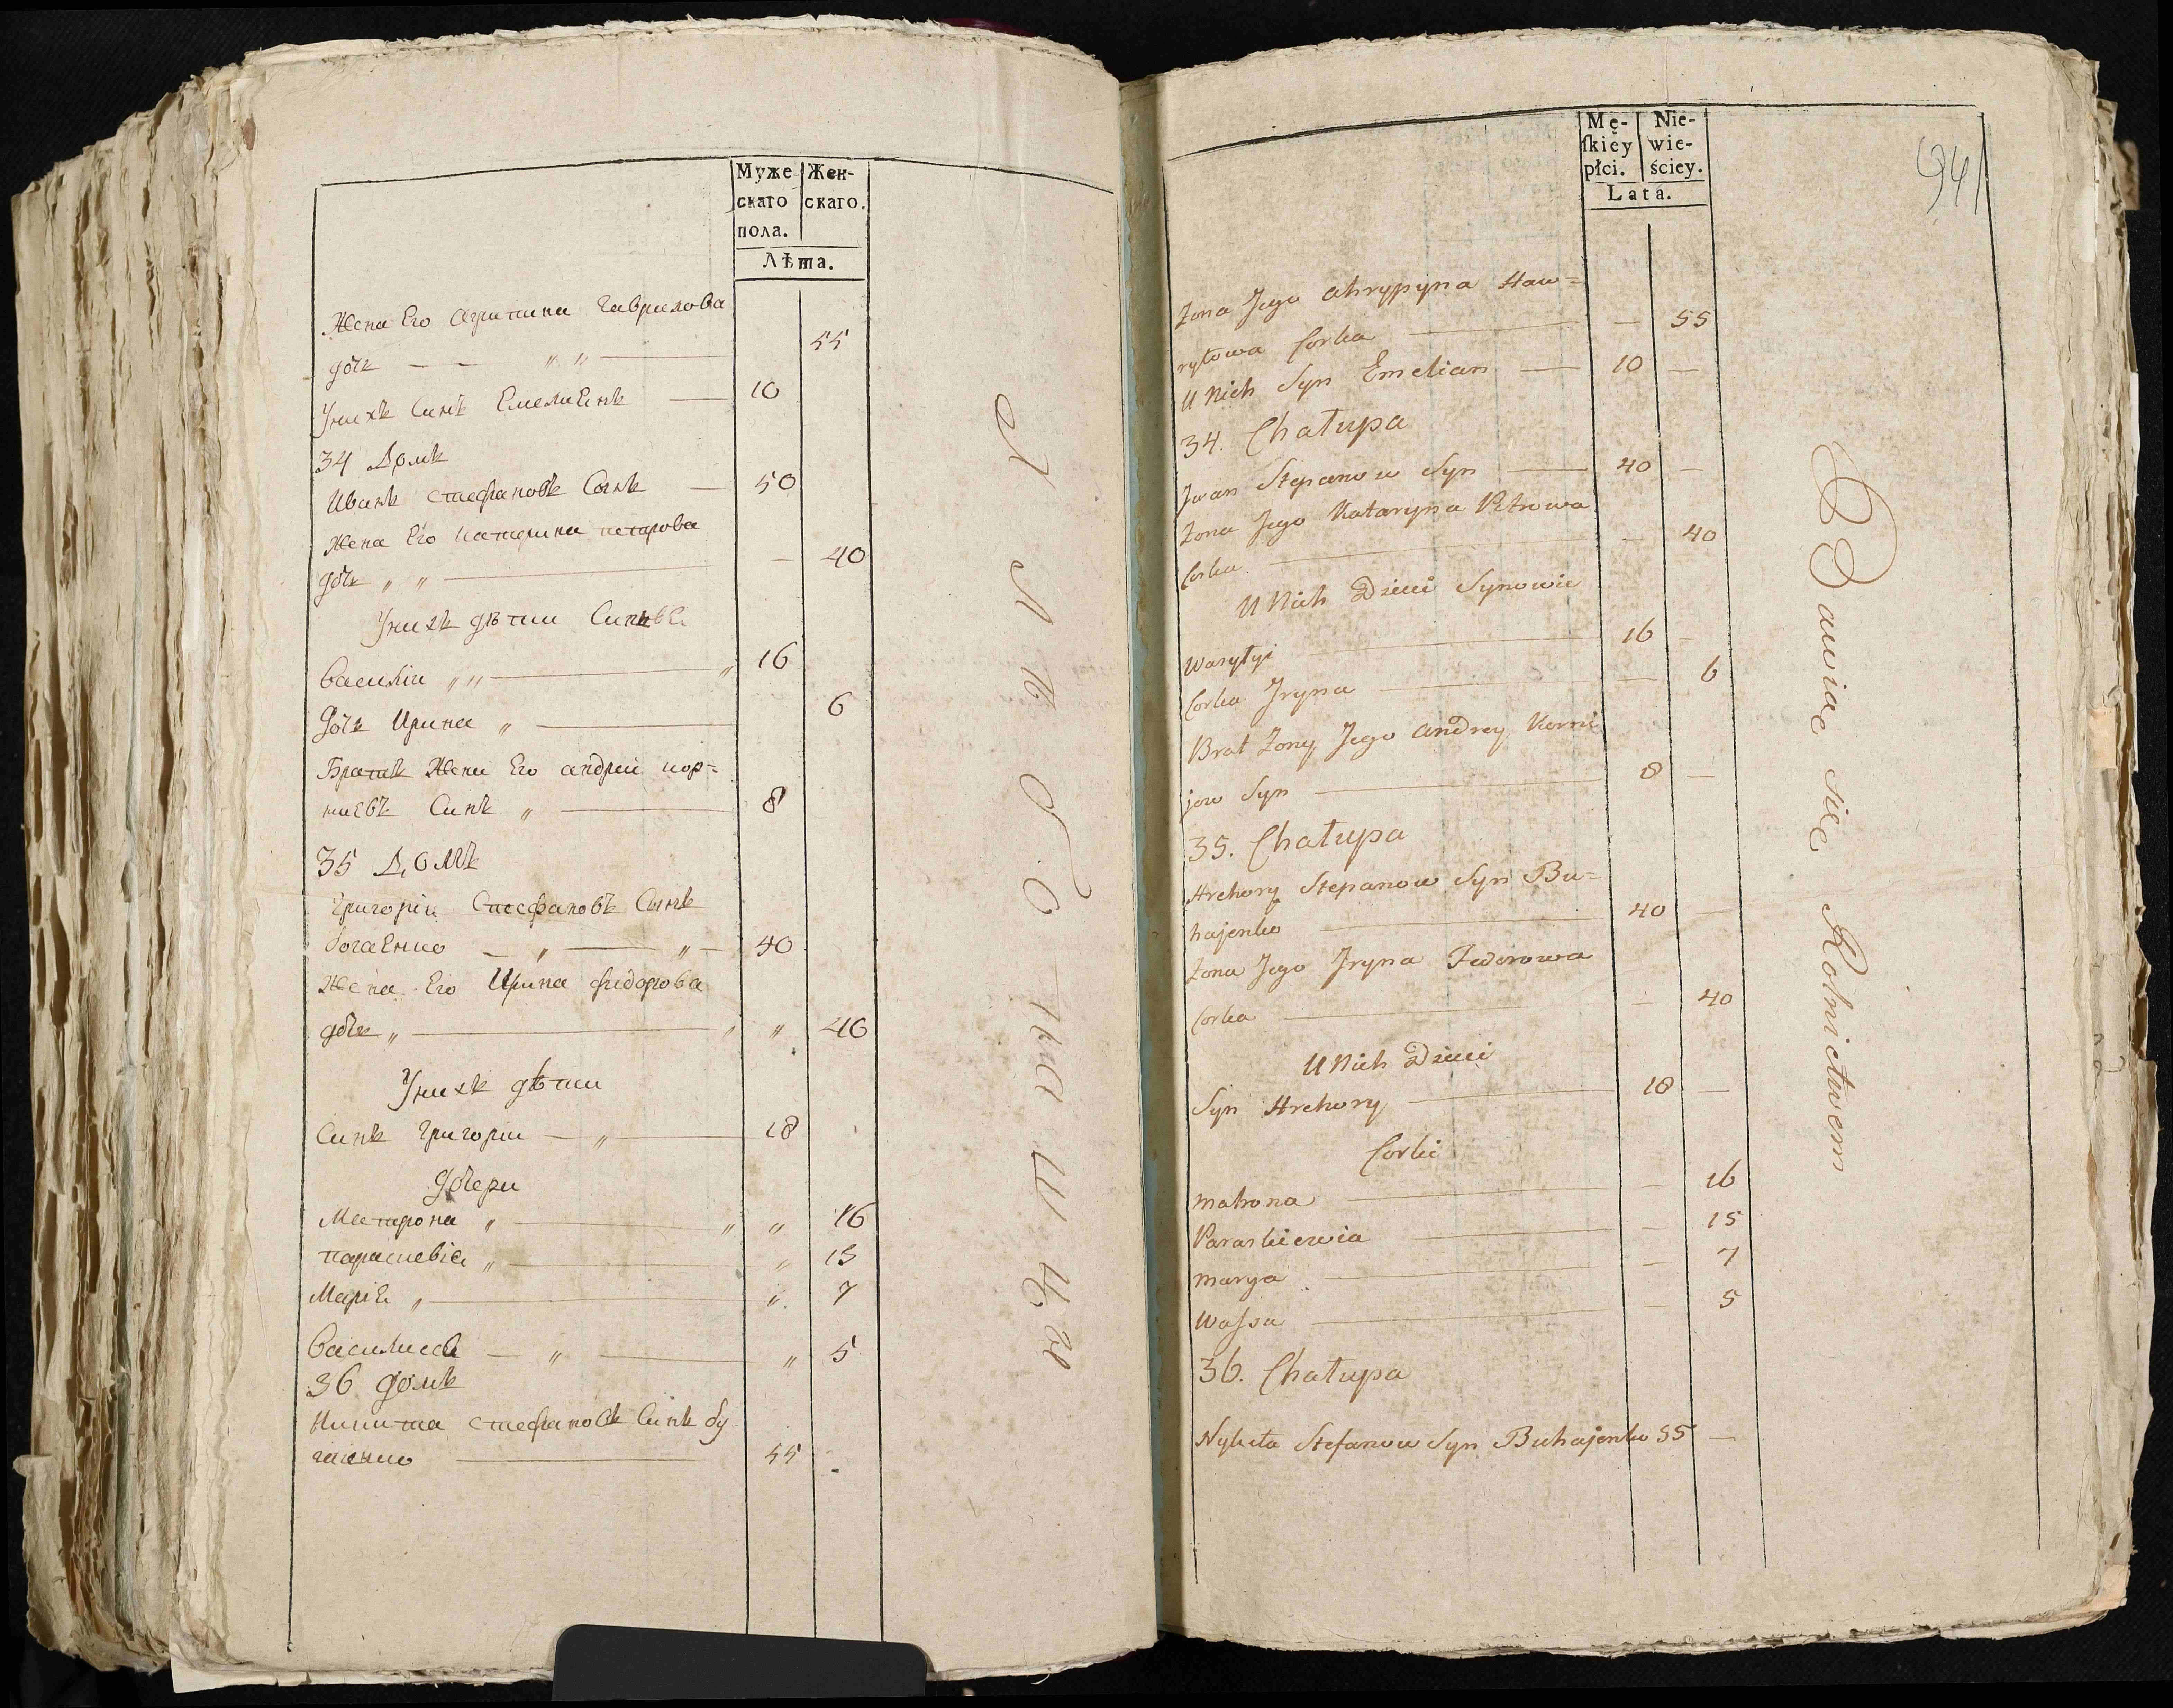 Муже
скаго
пола.
Жен-
скаго.
Лѣта.
Жена Его Агрипина Гаврилова
дочь — — " " — 55
Унихъ Синъ ЕмелиЕнъ — 10
34 Домъ
Иванъ Стефановъ Сынъ — 50
Жена Его Катерина петрова
дочь " " — — 40
Унихъ дѣти Синовѣ
Василіи " " — " 16
Дочь Ирина " — 6
Братъ Жени Его андрей кор=
ниевъ Синъ " — 8
35 Домъ
Григоріи Стефановъ Сынъ
богаЕнко — " — " — 40
Жена Его Ирина фидорова
дочь " — " " 40
Унихъ дѣти
Синъ Григории — " — 18
Дочери
Матрона " — " " 16
параскевіа " — " 15
МаріЕ " — " 7
Василиса — " — " 5
36 домъ
Никита стефановъ Синъ бу
гаенко — 55
Mę-
ſkiey
płci.
Nie-
wie-
ściey.
Lata.
941
Żona Jego Ahrypyna Haw=
ryłowa Corka — — 55
U Nich Syn Emelian — 10 —
34. Chałupa
Jwan Stepanow Syn — 40 —
Żona Jego Kataryna Petrowa
Corka — — 40
U Nich Dzieci Synowie
Wasyłyi — 16 —
Corka Jryna — — 6
Brat Żony Jego Andrey Korni
jow Syn — 8 —
35. Chałupa
Hrehory Stepanow Syn Bu=
hajenko — 40 —
Żona Jego Jryna Fedorowa
Corka — — 40
U Nich Dzieci
Syn Hrehory — 18 —
Corki
Matrona — — 16
Paraskiewia — — 15
Marya — — 7
Wassa — — 5
36. Chałupa
Nykita Stefanow Syn Buhajenko 55 —
Bawiąc się Rolnictwem